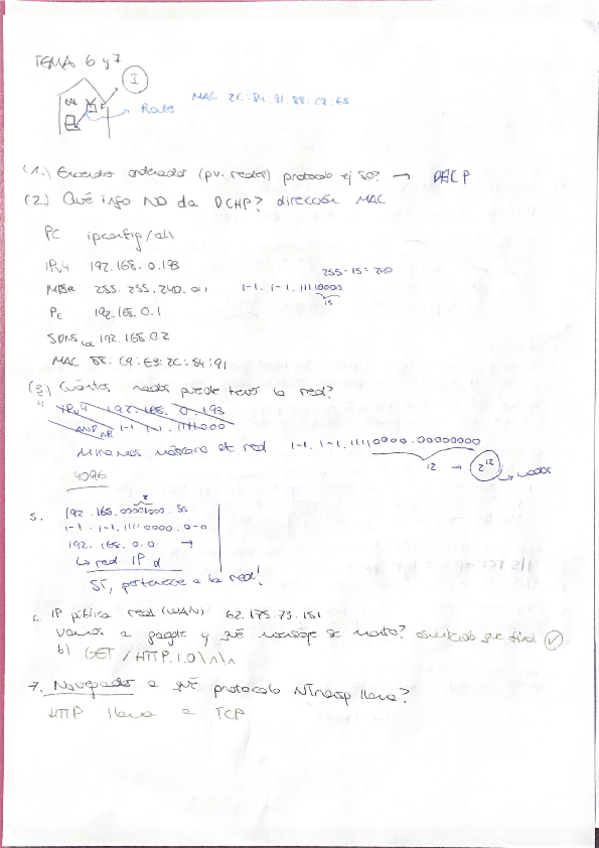 TEMA 6 y 7
I
MAC 2C:84:91:88:C9:E8
Router
(1.) Encender ordenador (pv. redes) protocolo ej SO? → DHCP
(2.) Qué info NO da DCHP? dirección MAC
PC ipconfig/all
IPv4 192.168.0.193
255-15=240
255.255.240.0
1-1.1-1.11110000
15
PE 192.168.0.1
SDNS 192.168.0.2
MAC C9:E8:2C:84:91
(3.) Cuántos nodos puede tener la red?
IPv4 192.168.0.193
AND 1-1 1-1.1111000
Miramos máscara de red 1-1.1-1.11110000.00000000
12 → 2^12 → nodos
4096
5. 192.168.00001000.50
1-1.1-1.11110000.0-0
192.168.0.0 →
↳ red IP
Sí, pertenece a la red!
6. IP pública real (WAN) 62.175.73.151
vamos a google y qué mensaje se
b) GET / HTTP.1.0\n\n
7. Navegador a qué protocolo NTransp llama?
HTTP llama a TCP